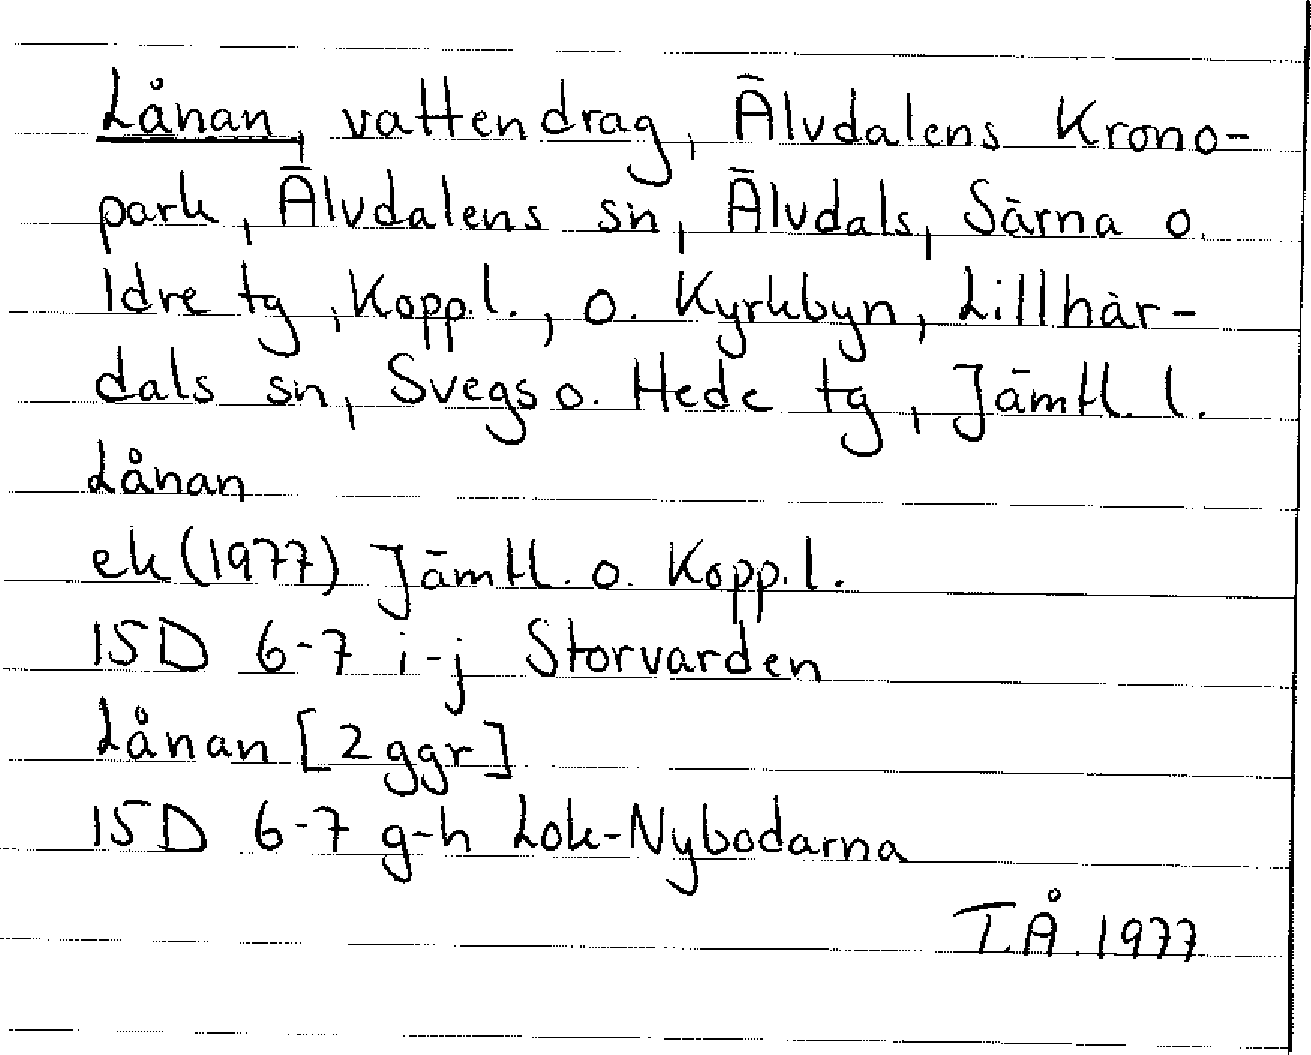 Lånan, vattendrag, Älvdalens Krono-
park, Älvdalens sn, Älvdals, Särna o.
Idre tg, Kopp.l., o. Kyrkbyn, Lillhär-
dals sn, Svegs o. Hede tg, Jämtl. l.
Lånan
ek (1977) Jämtl. o. Kopp.l.
15D 6-7 i-j Storvarden
Lånan [2 ggr]
15D 6-7 g-h Lok-Nybodarna
T.Å. 1977